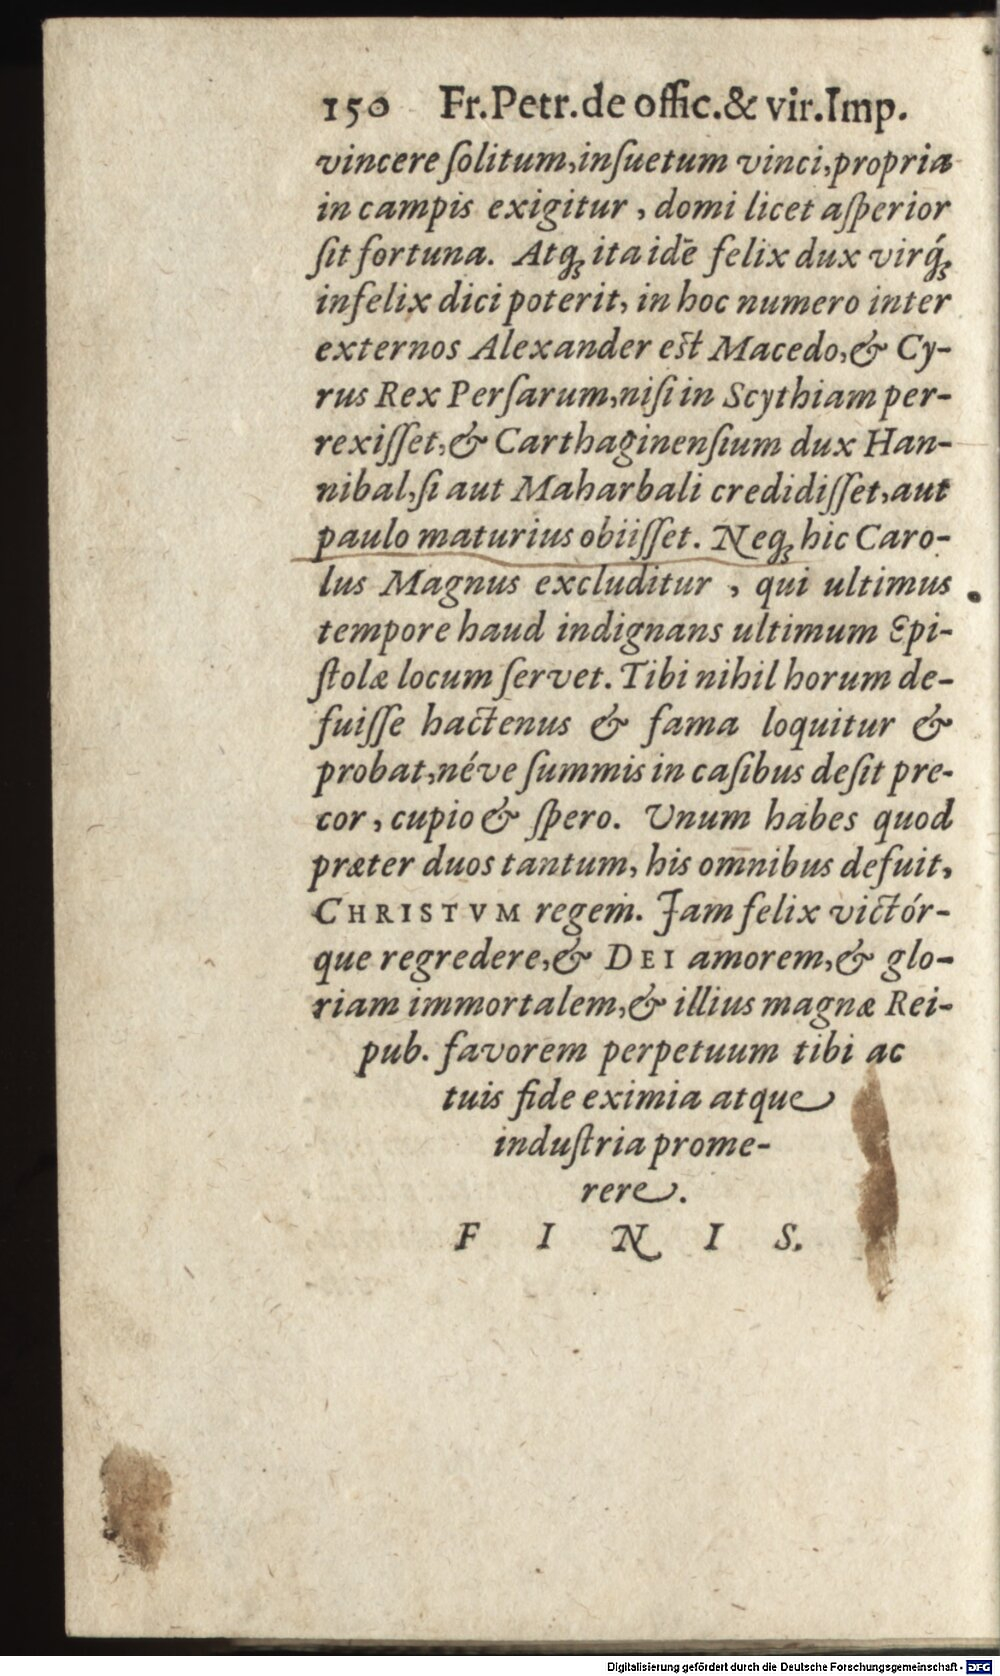 150 Fr. Petr. de offic. & vir. Imp.
vincere ſolitum, inſuetum vinci, propria
in campis exigitur, domi licet aſperior
ſit fortuna. Atq̨ ita idē felix dux virq̨́
infelix dici poterit, in hoc numero inter
externos Alexander eſt Macedo, & Cy-
rus Rex Perſarum, niſi in Scythiam per-
rexiſſet, & Carthaginenſium dux Han-
nibal, ſi aut Maharbali credidiſſet, aut
paulo maturius obiiſſet. Neq̨ hic Caro-
lus Magnus excluditur, qui ultimus
tempore haud indignans ultimum Epi-
ſtolæ locum ſervet. Tibi nihil horum de-
fuiſſe hactenus & fama loquitur &
probat, néve ſummis in caſibus deſit pre-
cor, cupio & ſpero. Unum habes quod
præter duos tantum, his omnibus defuit,
CHRISTVM regem. Jam felix victór-
que regredere, & DEI amorem, & glo-
riam immortalem, & illius magnæ Rei-
pub. favorem perpetuum tibi ac
tuis fide eximia atque
induſtria prome-
rere.
F I N I S.
Digitalisierung gefördert durch die Deutsche Forschungsgemeinschaft - DFG